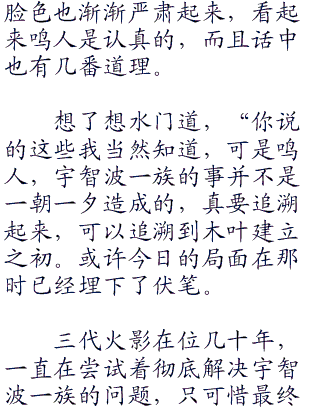 脸色也渐渐严肃起来，看起
来鸣人是认真的，而且话中
也有几番道理。
想了想水门道，“你说
的这些我当然知道，可是鸣
人，宇智波一族的事并不是
一朝一夕造成的，真要追溯
起来，可以追溯到木叶建立
之初。或许今日的局面在那
时已经埋下了伏笔。
三代火影在位几十年，
一直在尝试着彻底解决宇智
波一族的问题，只可惜最终